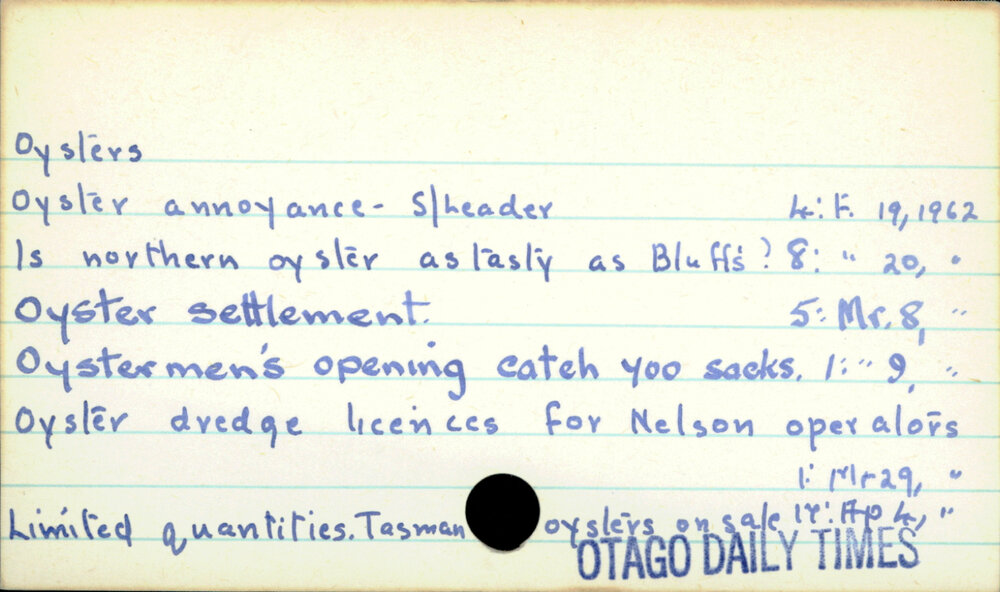 Oysters
Oyster annoyance - S/header 4: F. 19, 1962
Is northern oyster as tasty as Bluff's? 8: " 20, "
Oyster settlement. 5: Mr. 8, "
Oystermen's opening catch 400 sacks. 1: " 9, "
Oyster dredge licences for Nelson operators
1: Mr 29, "
Limited quantities. Tasman oysters on sale : Ap 4, "
OTAGO DAILY TIMES